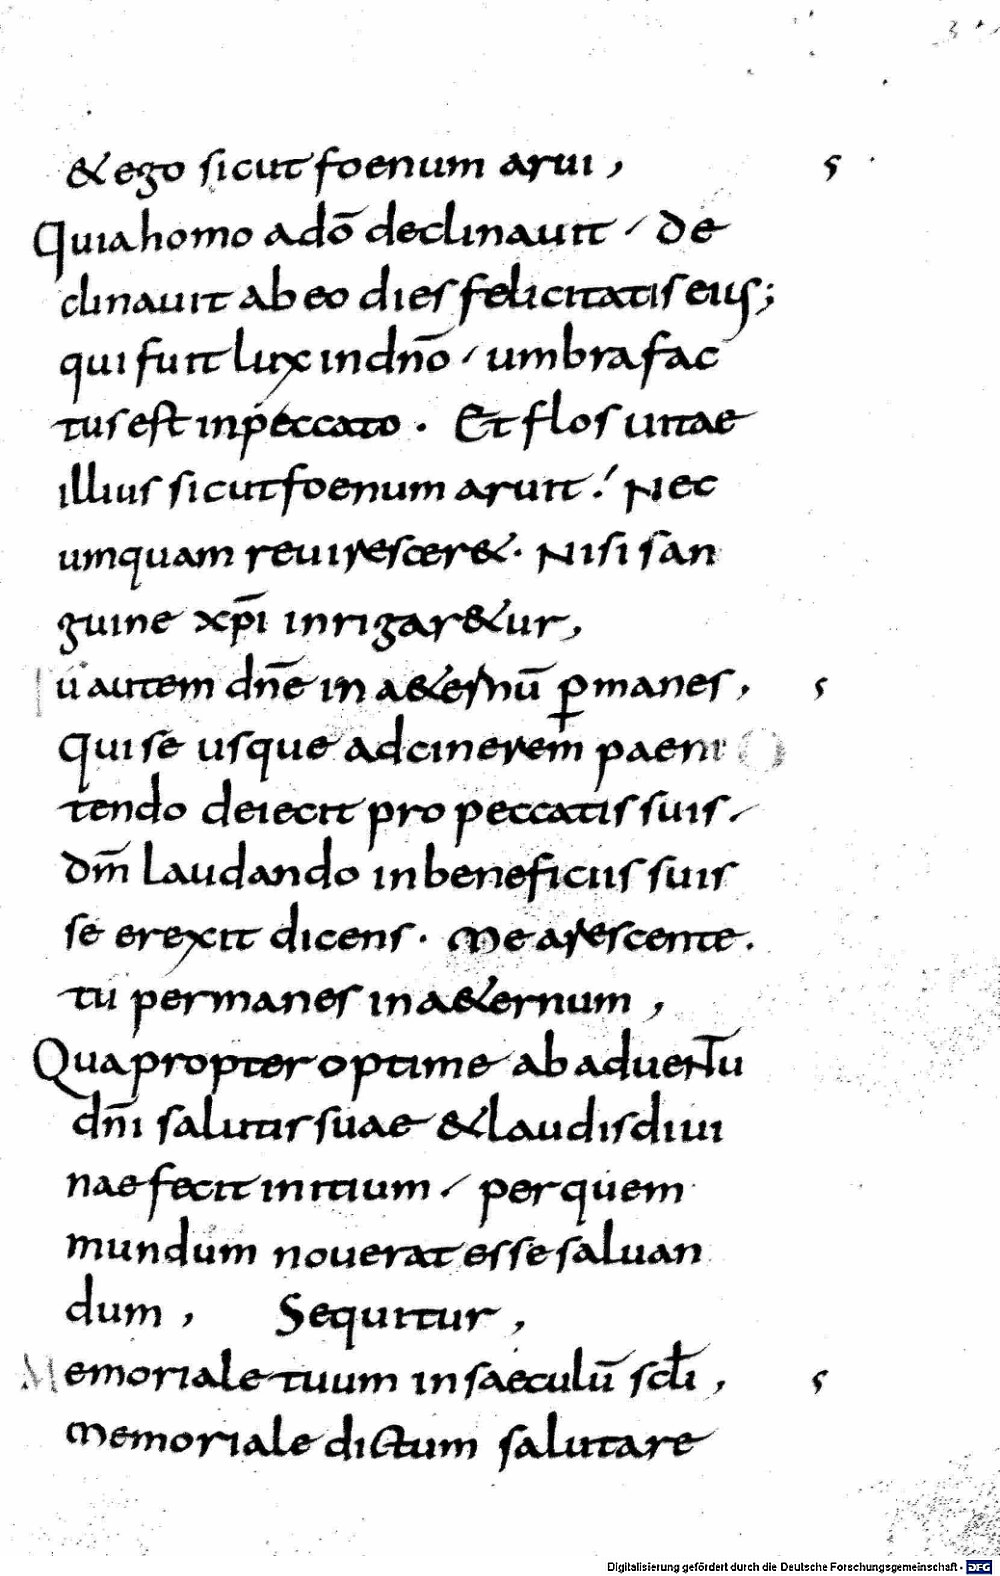 & ego sicut foenum arui, s
Quia homo a dō declinauit / de
clinauit ab eo dies felicitatis eius;
qui fuit lux in dnō / umbra fac
tus est in peccato . Et flos uitae
illius sicut foenum aruit ! Nec
umquam reuirescer& . Nisi san
guine xpī inrigar&ur,
Tu autem dnē in a&ernū ꝑmanes, s
Qui se usque ad cinerem paeni
tendo deiecit pro peccatis suis /
dm̄ laudando in beneficiis suis
se erexit dicens . Me arescente .
tu permanes in a&ernum ,
Quapropter optime ab aduentu
dnī salutis suae & laudis diui
nae fecit initium / per quem
mundum nouerat esse saluan
dum , Sequitur ,
Memoriale tuum in saeculū scłi , s
Memoriale dictum salutare
Digitalisierung gefördert durch die Deutsche Forschungsgemeinschaft - DFG